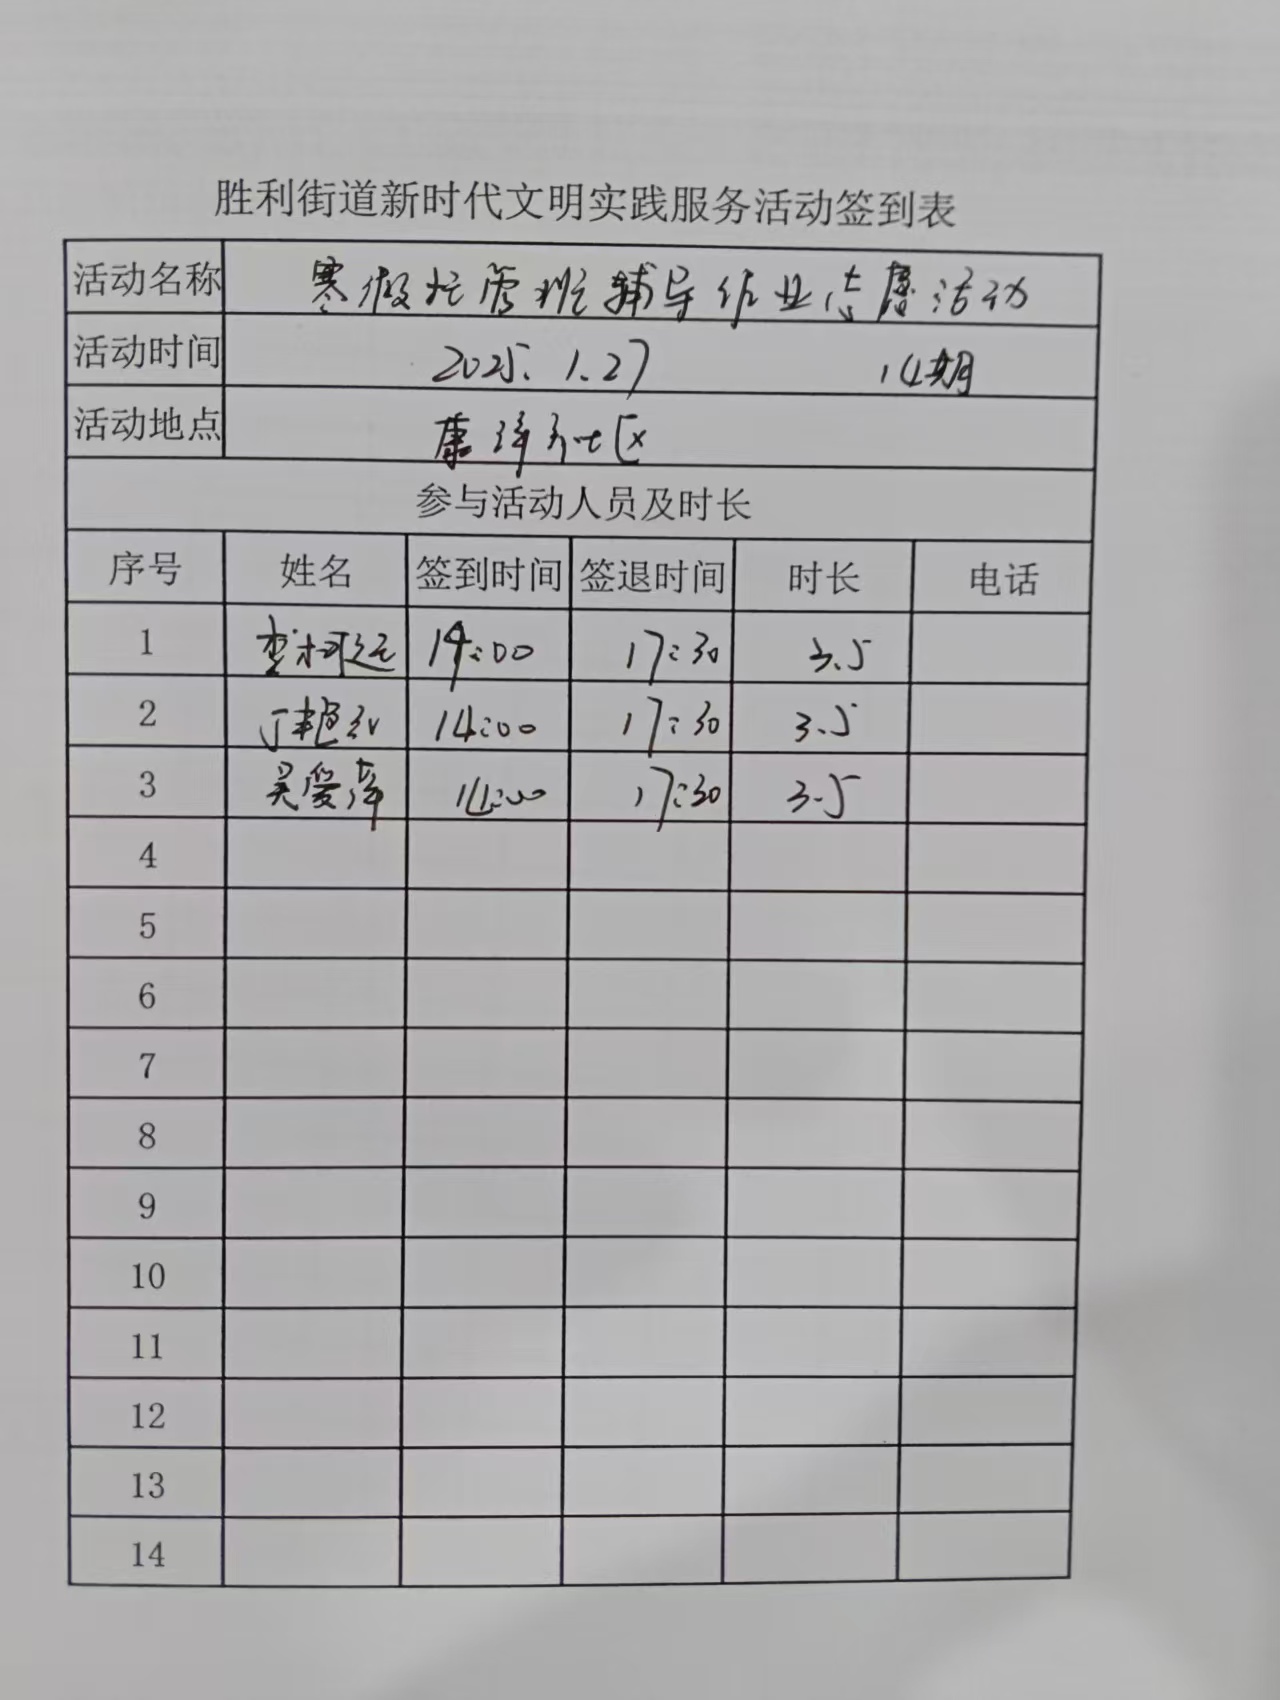 胜利街道新时代文明实践服务活动签到表
活动名称 寒假托管班辅导作业志愿活动
活动时间 2025.1.27 14期
活动地点 社区
参与活动人员及时长
序号 姓名 签到时间 签退时间 时长 电话
1 14:00 17:30 3.5
2 14:00 17:30 3.5
3 吴爱萍 14:00 17:30 3.5
4
5
6
7
8
9
10
11
12
13
14